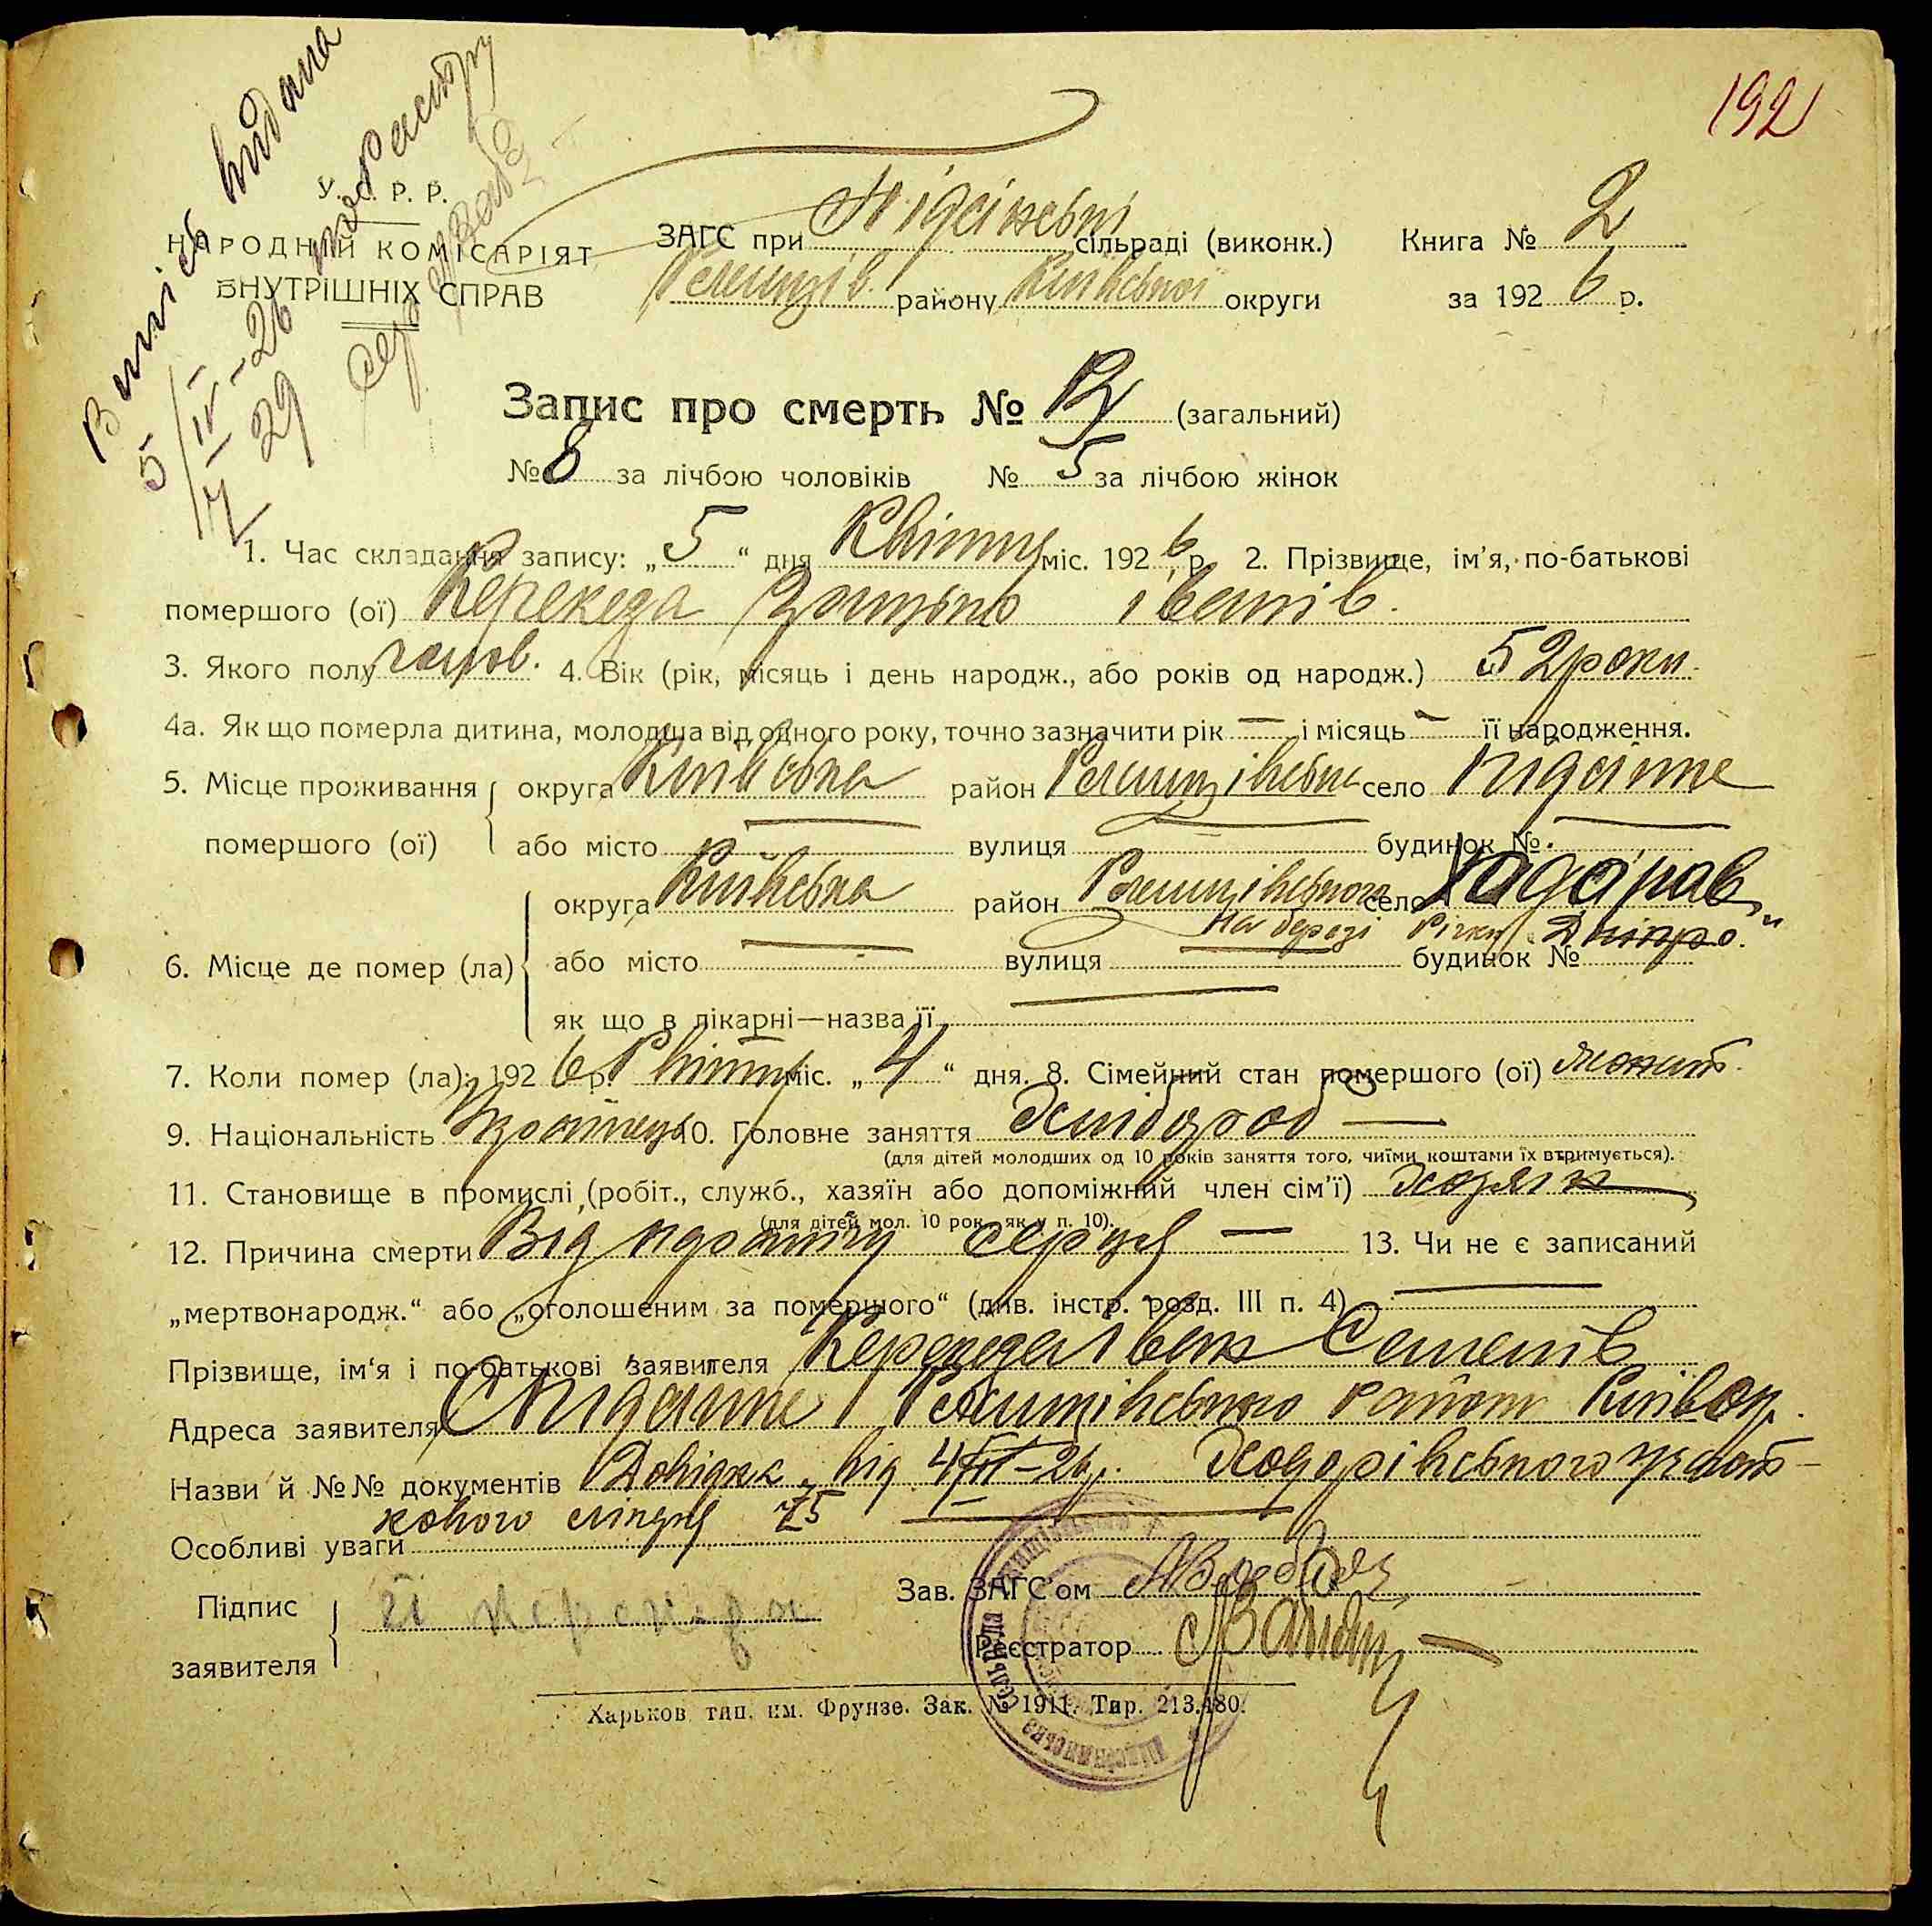 192
Випись видана
5/IV-26
У. С. Р. Р.
НАРОДНИЙ КОМІСАРІЯТ
ВНУТРІШНІХ СПРАВ
ЗАГС при сільраді (виконк.) Книга № 2
району Київської округи за 192 6 р.
Запис про смерть № (загальний)
№ 8 за лічбою чоловіків № 5 за лічбою жінок
1. Час складання запису: „ 5 “ дня Квітня міс. 192 6 р. 2. Прізвище, ім’я, по-батькові
помершого (ої) Іванів.
3. Якого полу чолов. 4. Вік (рік, місяць і день народж., або років од народж.) 52 роки.
4а. Як що померла дитина, молодша від одного року, точно зазначити рік — і місяць — її народження.
5. Місце проживання округа Київська район село Підсінне
помершого (ої) або місто — вулиця — будинок № —
округа Київська район село Ходорів
На березі річки „Дніпро“
6. Місце де помер (ла) або місто — вулиця — будинок №
як що в лікарні—назва її —
7. Коли помер (ла): 192 6 р. Квітня міс. „ 4 “ дня. 8. Сімейний стан помершого (ої) жонат.
9. Національність Українець 10. Головне заняття Хлібороб —
(для дітей молодших од 10 років заняття того, чиїми коштами їх втримується).
11. Становище в промислі (робіт., служб., хазяїн або допоміжний член сім’ї) Хозяін
(для дітей мол. 10 рок. як у п. 10).
12. Причина смерти Від серця — 13. Чи не є записаний
„мертвонародж.“ або „оголошеним за помершого“ (див. інстр. розд. III п. 4) —
Прізвище, ім‘я і по-батькові заявителя Іван Семенів
Адреса заявителя С Підсінне району Київ окр.
Назви й №№ документів Довідка від 4/IV-26 р. Ходорівського участ-
кового лікаря 75
Особливі уваги
Підпис
заявителя
Зав. ЗАГС‘ом
Реєстратор
Харьков тип. им. Фрунзе. Зак. № 1911. Тир. 213.480.